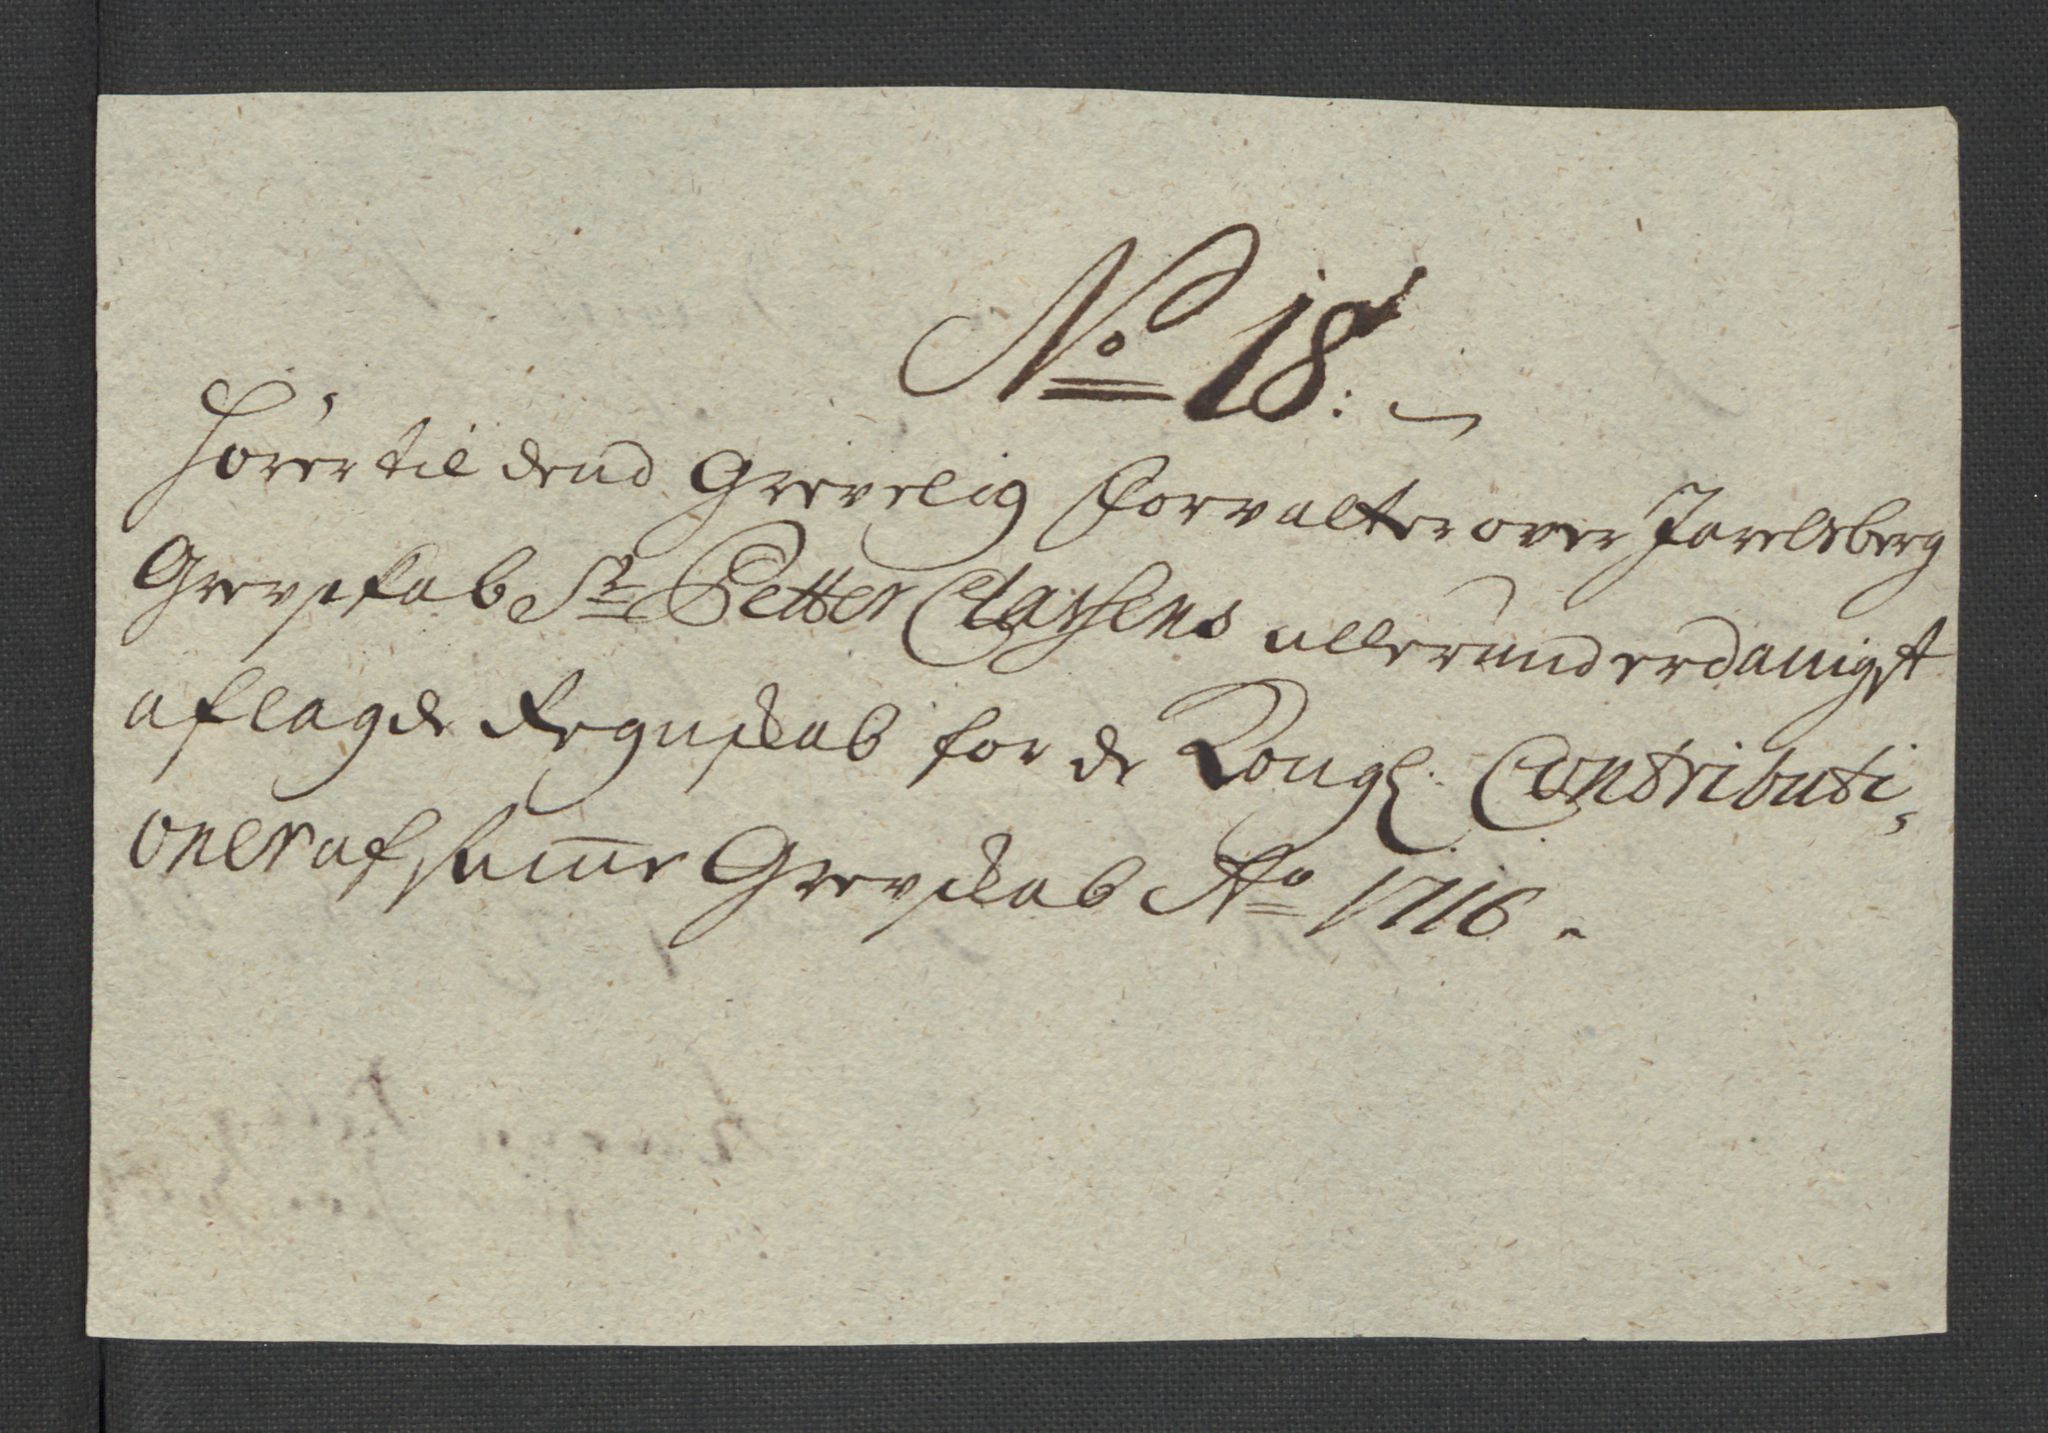 No 18:
Hörer til dend Grevelig Forvalter over Jarelsberg
Grevskab Sr Petter Clausens allerunderdanigst
aflagde Regnskab for de Kongl. Contributi,
oner af samme Grevskab Ao 1716.